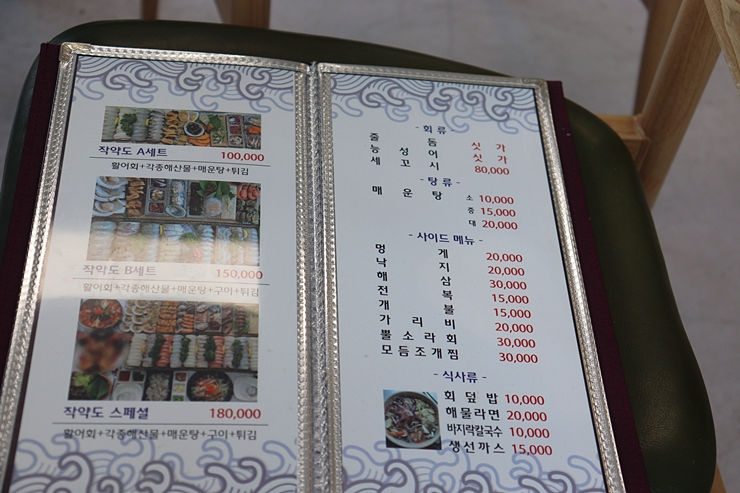 작약도 A세트 100,000
활어회+각종해산물+매운탕+튀김
작약도 B세트 150,000
활어회+각종해산물+매운탕+구이+튀김
작약도 스페셜 180,000
활어회+각종해산물+매운탕+구이+튀김
- 회류 -
줄돔 싯가
능성어 싯가
세꼬시 80,000
- 탕류 -
매운탕 소 10,000
중 15,000
대 20,000
- 사이드 메뉴 -
멍게 20,000
낙지 20,000
해삼 30,000
전복 15,000
개불 15,000
가리비 20,000
뿔소라회 30,000
모듬조개찜 30,000
- 식사류 -
회덮밥 10,000
해물라면 20,000
바지락칼국수 10,000
생선까스 15,000